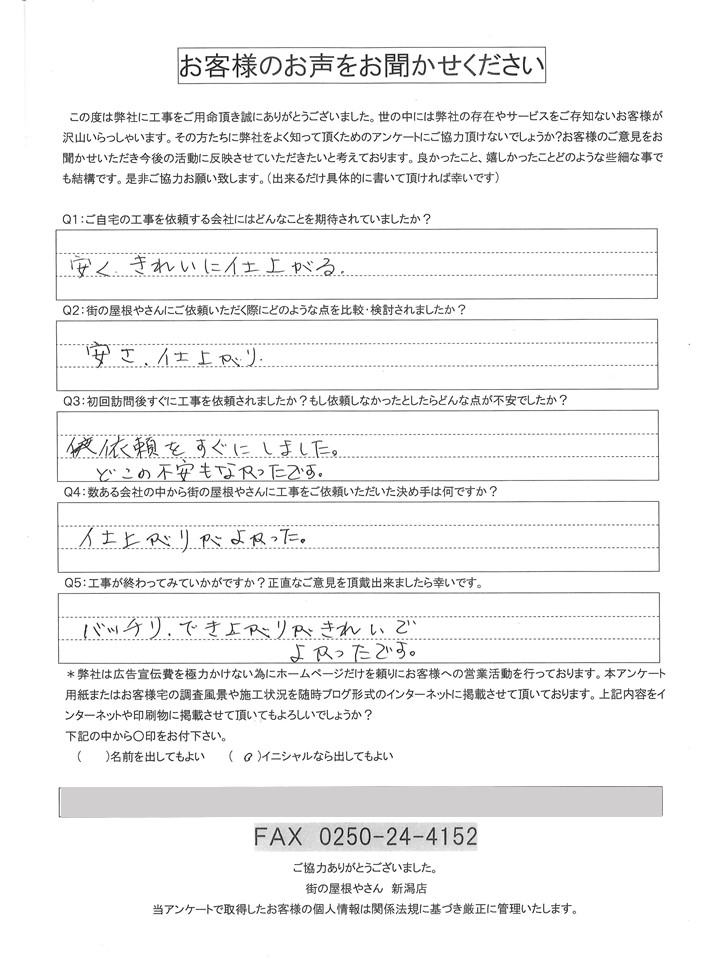 お客様のお声をお聞かせください
この度は弊社に工事をご用命頂き誠にありがとうございました。世の中には弊社の存在やサービスをご存知ないお客様が
沢山いらっしゃいます。その方たちに弊社をよく知って頂くためのアンケートにご協力頂けないでしょうか?お客様のご意見をお
聞かせいただき今後の活動に反映させていただきたいと考えております。良かったこと、嬉しかったことどのような些細な事で
も結構です。是非ご協力お願い致します。(出来るだけ具体的に書いて頂ければ幸いです)
Q1:ご自宅の工事を依頼する会社にはどんなことを期待されていましたか?
安く、きれいに仕上がる。
Q2:街の屋根やさんにご依頼いただく際にどのような点を比較・検討されましたか?
安さ、仕上がり。
Q3:初回訪問後すぐに工事を依頼されましたか?もし依頼しなかったとしたらどんな点が不安でしたか?
依頼をすぐにしました。
どこの不安もなかったです。
Q4:数ある会社の中から街の屋根やさんに工事をご依頼いただいた決め手は何ですか?
仕上がりがよかった。
Q5:工事が終わってみていかがですか?正直なご意見を頂戴出来ましたら幸いです。
バッチリ、でき上がりがきれいで
よかったです。
*弊社は広告宣伝費を極力かけない為にホームページだけを頼りにお客様への営業活動を行っております。本アンケート
用紙またはお客様宅の調査風景や施工状況を随時ブログ形式のインターネットに掲載させて頂いております。上記内容をイ
ンターネットや印刷物に掲載させて頂いてもよろしいでしょうか?
下記の中から〇印をお付下さい。
( )名前を出してもよい ( ○ )イニシャルなら出してもよい
FAX 0250-24-4152
ご協力ありがとうございました。
街の屋根やさん 新潟店
当アンケートで取得したお客様の個人情報は関係法規に基づき厳正に管理いたします。